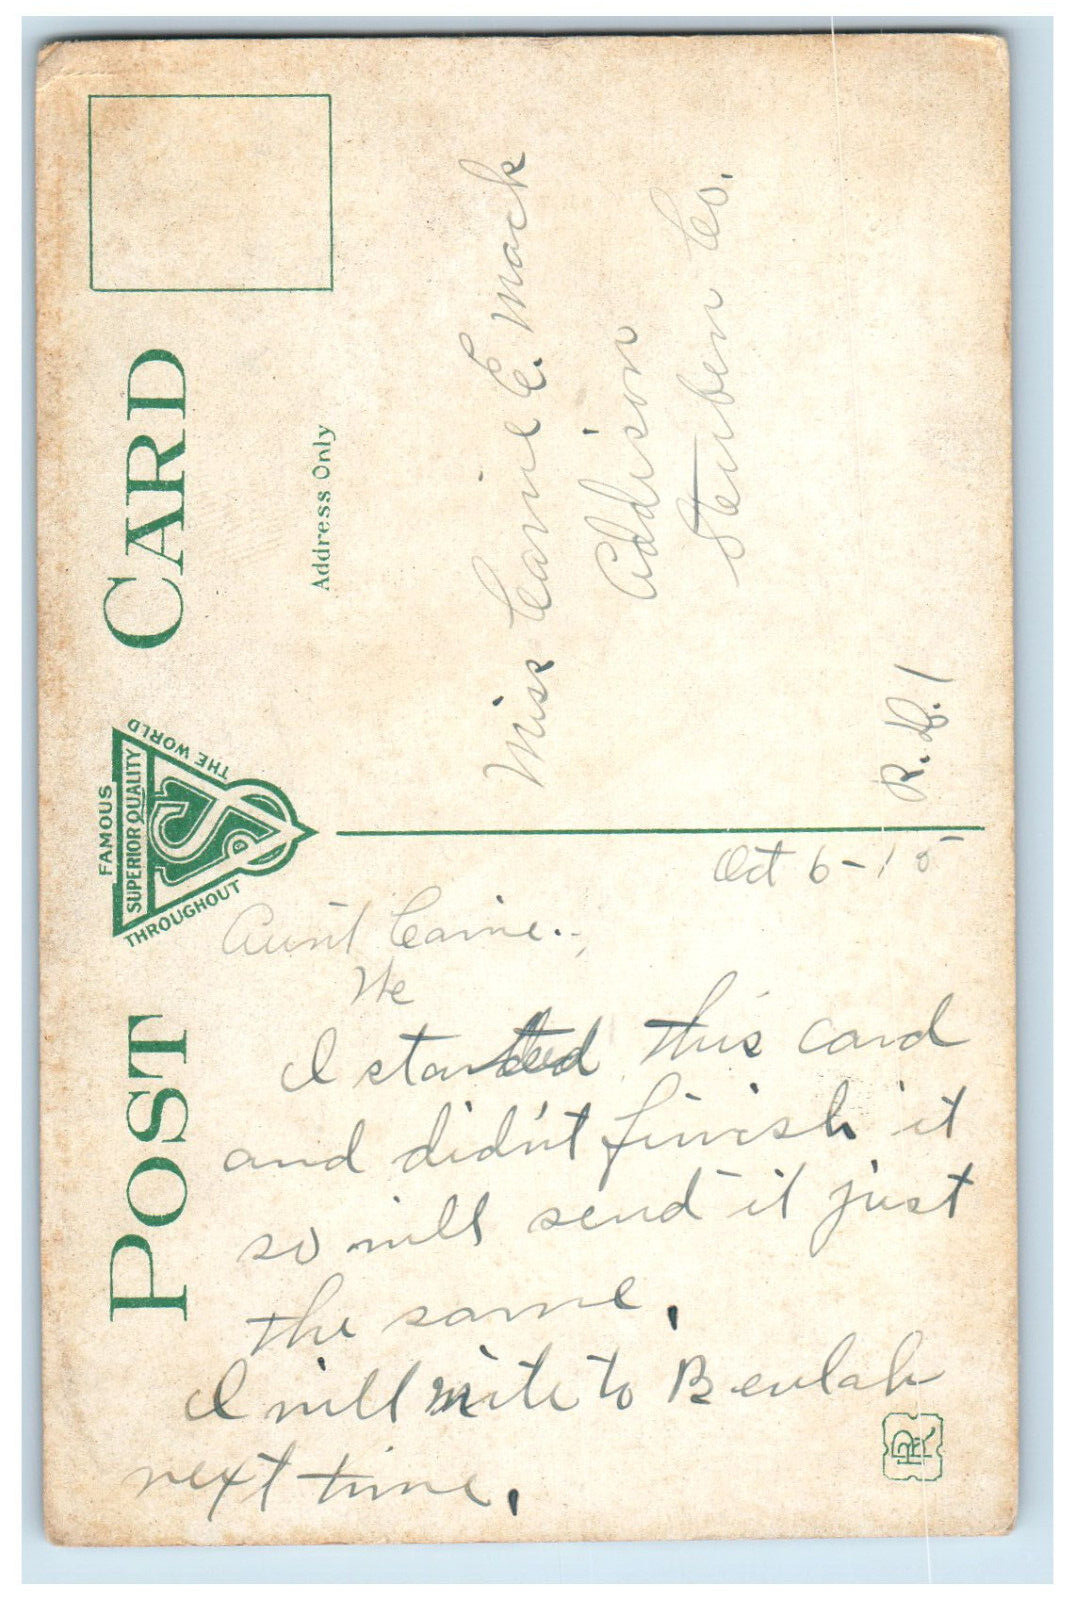 POST CARD
FAMOUS
SUPERIOR QUALITY
THROUGHOUT
THE WORLD
Address Only
Miss Carrie E. Mack
Addison
Steuben Co.
R. D. 1
Oct 6-15
Aunt Carrie.,
We
I started this card
and didn't finish it
so will send it just
the same.
I will write to Beulah
next time.